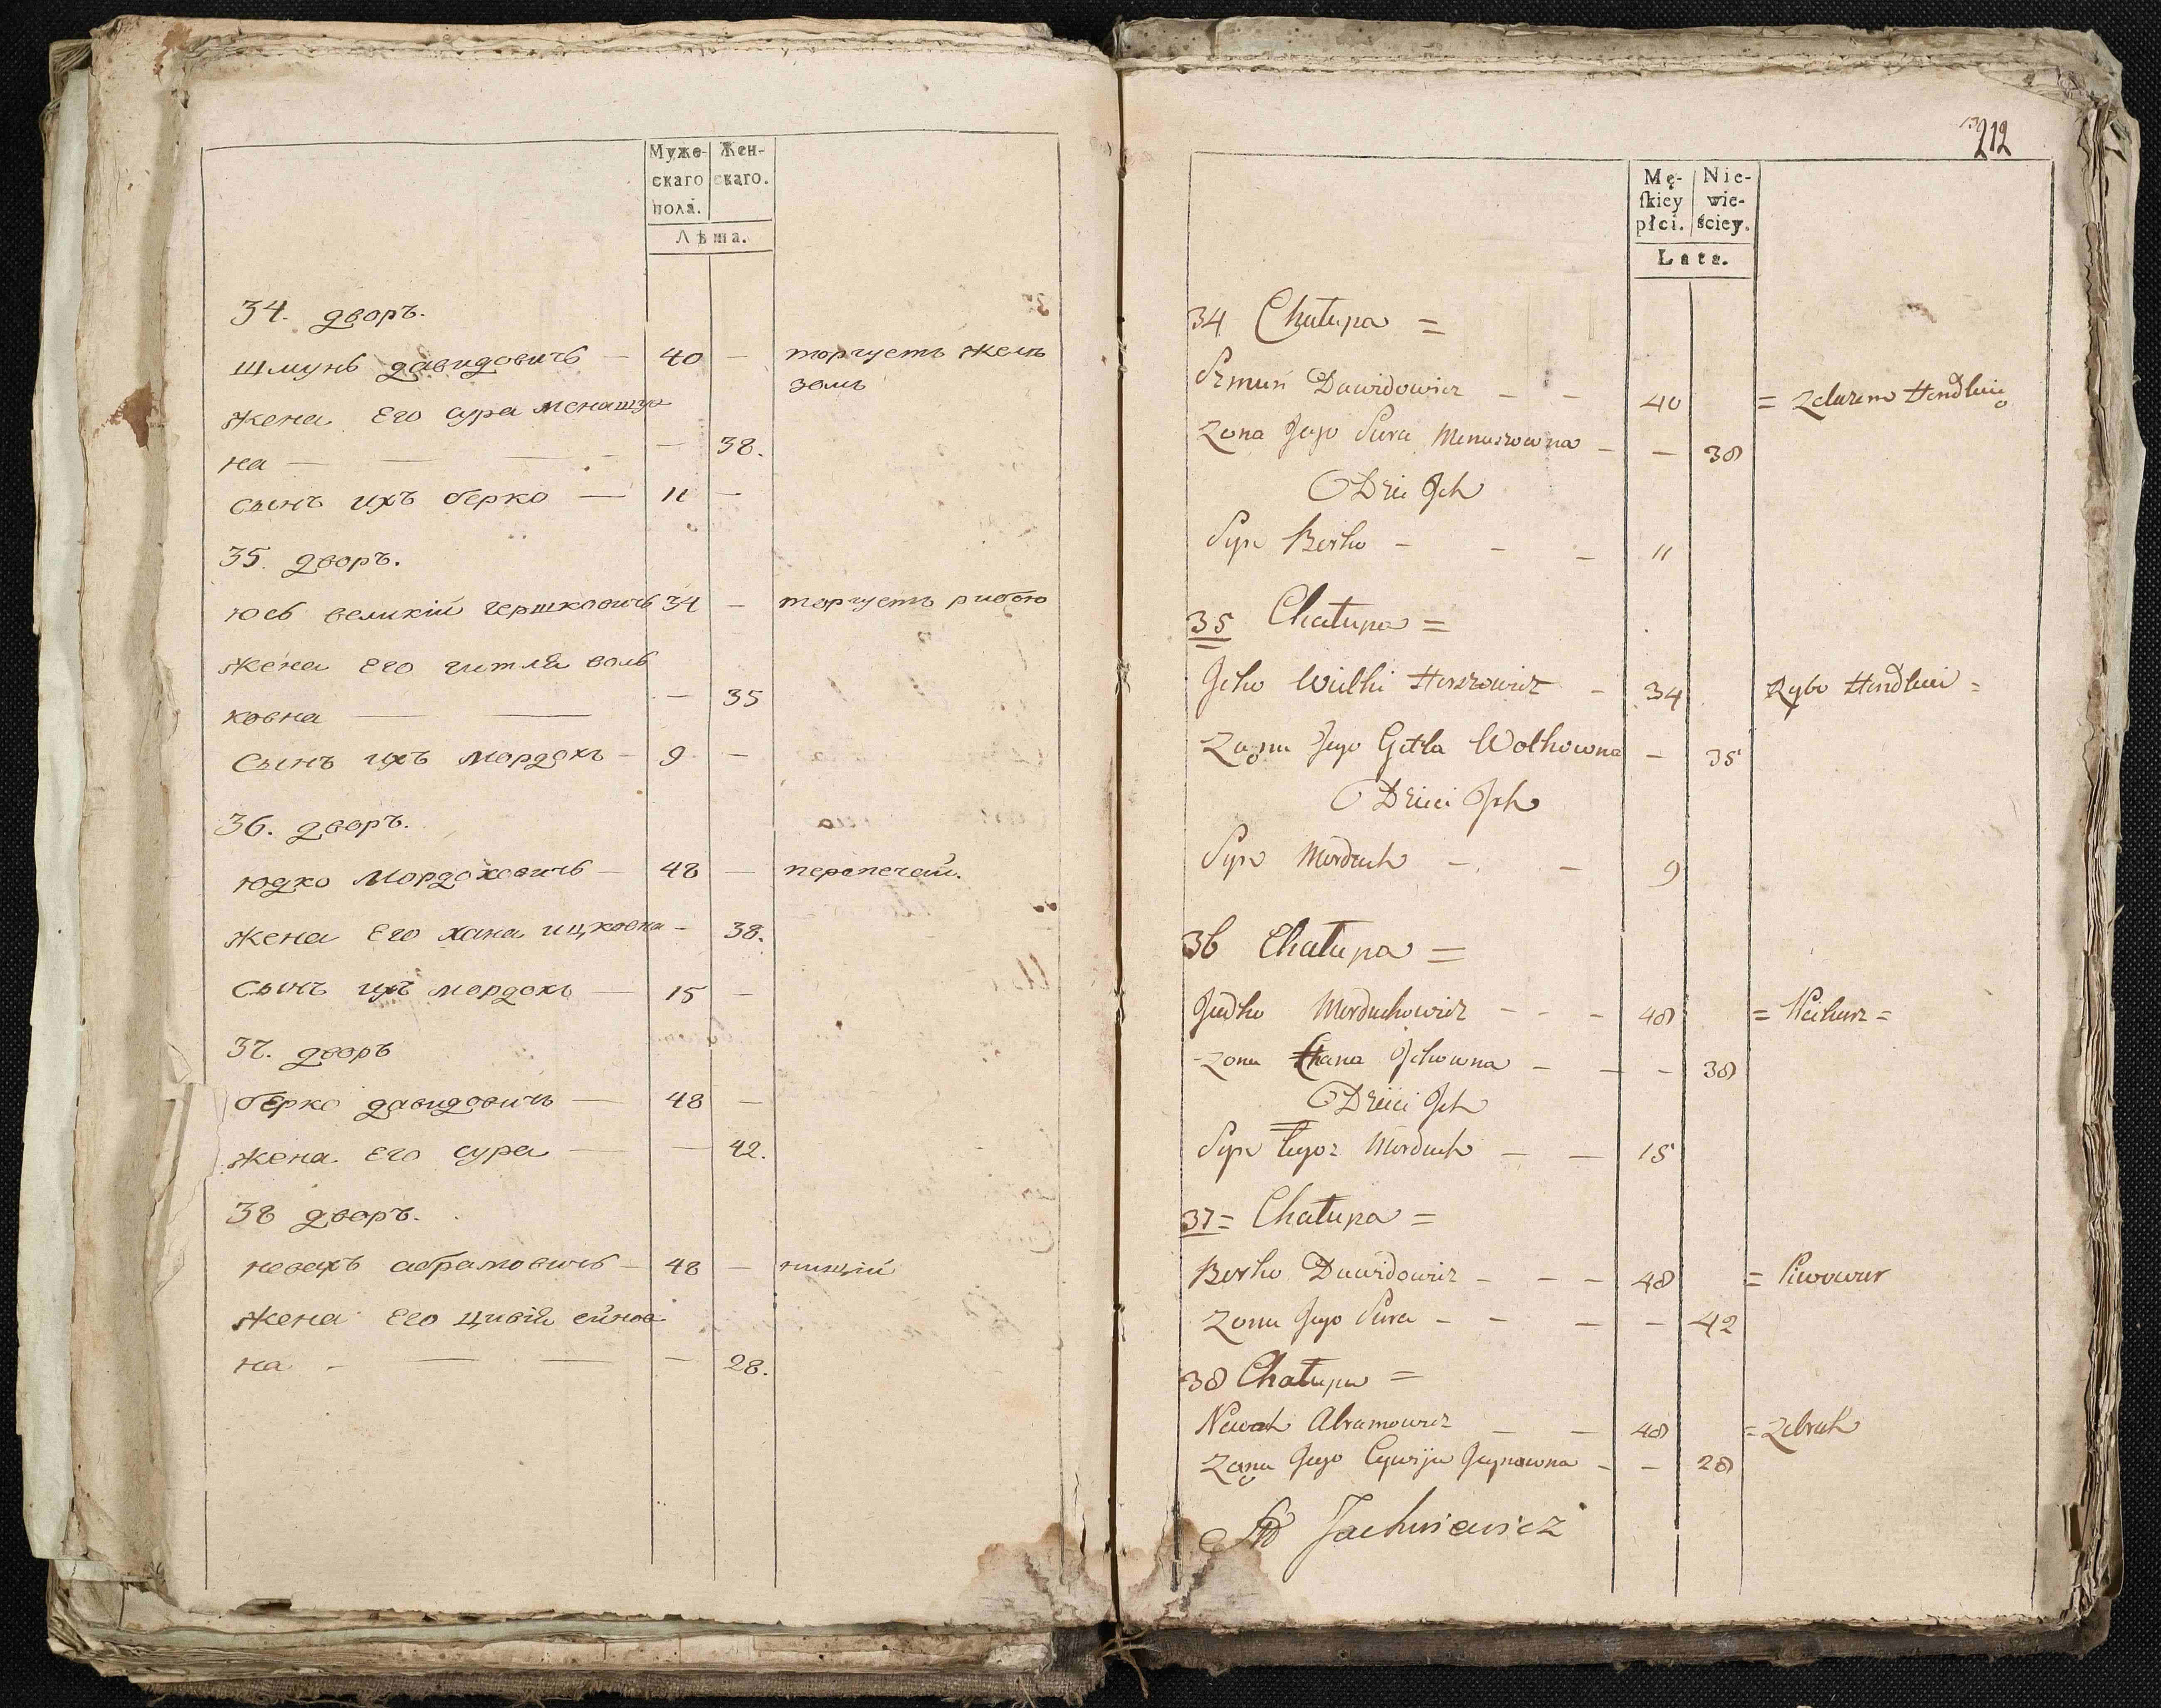 Муже-
скаго
пола.
Жен-
скаго.
Лѣта.
34. дворъ.
Шмунь давидовичь — 40 — торгуетъ желѣ
зомъ
жена Его сура менашов
на — — — — 38.
сынъ ихъ берко — 11 —
35. дворъ.
Юсь великій гершковичь 34 — торгуетъ рибою
жена Его гитля воль
ковна — — — 35
Сынъ ихъ мордохъ — 9 —
36. дворъ.
Юдко Мордоховичь — 48 — перепечай.
жена Его хана ицковна — 38.
Сынъ ихъ мордохъ — 15 —
37. дворъ
берко давидовичь — 48 —
жена Его сура — — 42.
38 дворъ.
невахъ абрамовичь — 48 — нищій
жена Его цивія ейнов
на — — — — 28.
212
Mę-
ſkiey
płci.
Nie-
wie-
ściey.
Lata.
34 Chałupa =
Szmuń Dawidowicz — — 40 = Zelazem Handluię
Zona Jego Sura Menaszowna — — 38
Dzieci Jch
Syn Berko — — — 11
35 Chałupa =
Wielki Herszkowicz — 34 Rybo Handluie =
Zona Jego Gitla Wolkowna — 35
Dzieci Jch
Syn Morduch — — 9
36 Chałupa =
Judko Morduchowicz — — — 48 = Piekarz =
Zona Chana Jckowna — — — 38
Dzieci Jch
Syn Morduch — — 15
37 = Chałupa =
Berko Dawidowicz — — — 48 = Piwowar
Zona Jego Sura — — — — 42
38 Chałupa =
Newach Abramowicz — — 48 = Zebrak
Zona Jego Cywija Jeynowna — — 28
Jachniewicz